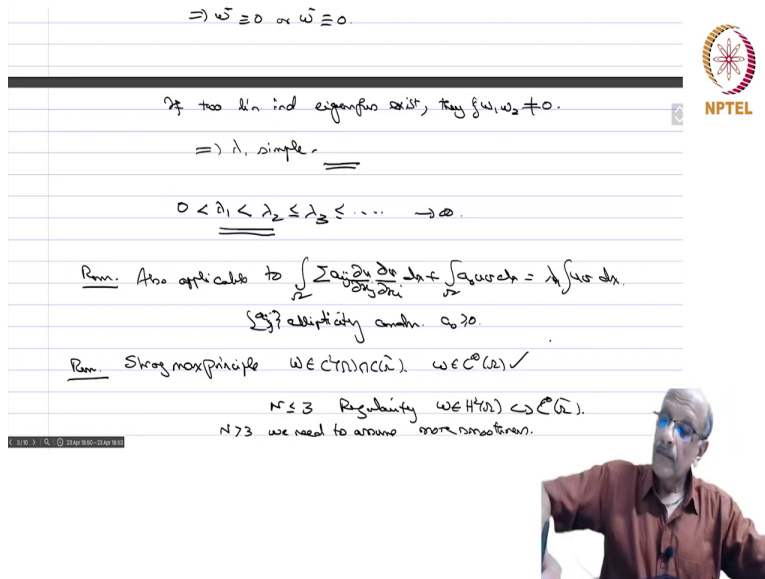 ⇒ w⁻ ≡ 0 or w⁻ ≡ 0.
NPTEL
If two lin ind eigenfns exist, then ∫ w₁ w₂ ≠ 0.
⇒ λ₁ simple.
0 < λ₁ < λ₂ ≤ λ₃ ≤ .... → ∞.
Rem. Also applicable to ∫_Ω Σ aᵢⱼ ∂u/∂xⱼ ∂v/∂xᵢ dx + ∫_Ω a₀uv dx = λ ∫ uv dx.
{aᵢⱼ} ellipticity condn. a₀ ≥ 0.
Rem. Strog max principle w ∈ C²(Ω) ∩ C(Ω̄). w ∈ C^∞(Ω) ✓
N ≤ 3 Regularity w ∈ H²(Ω) ↪ C(Ω̄).
N > 3 we need to assume more smoothness.
3/10 23 Apr 18:50 - 23 Apr 18:53